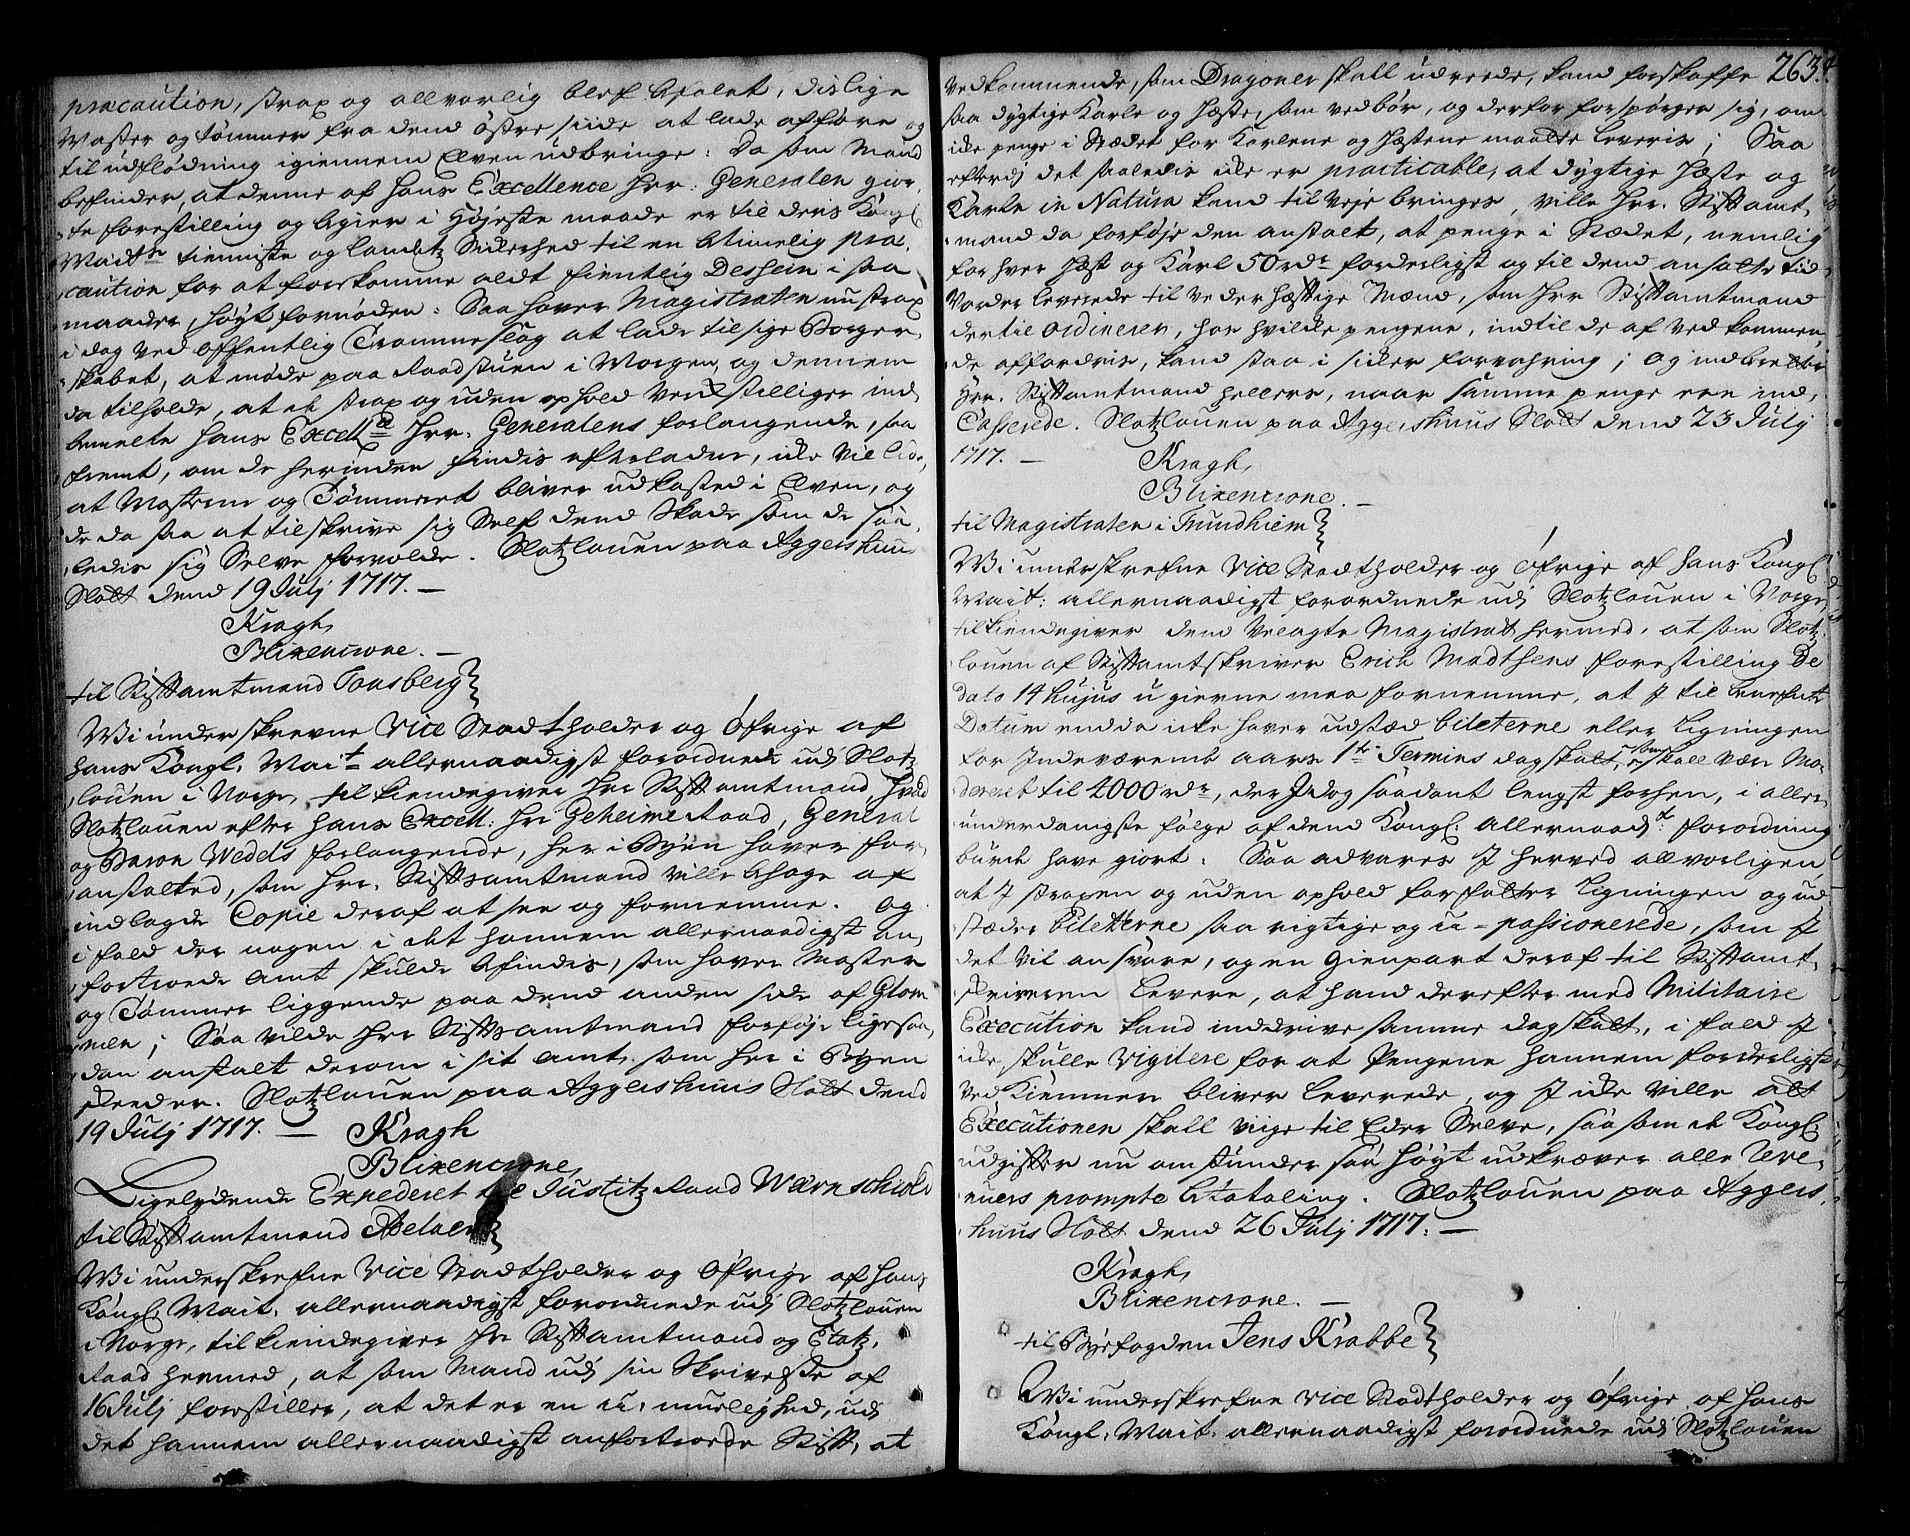 præcaution, strax og allvorlig blef befalet, dislige
Master og Tømmer fra dend östre siide at lade afföre og
til udflödning igiennem Elven udbringe: Da som Mand
befinder, at denne af hans Excellence Hrr: Generalen gior,
te forestilling og begier i Højeste maade er til deris Kongl
Maitts tienniste og landetz Sickerhed til en betimelig præ,
caution for at forekomme aldt fientlig Dessein i saa
maader, høyt fornøden: Saa haver Magistraten nu strax
i dag ved offentlig Trommeslag at lade tilsige Borger,
skabet, at møde paa Raadstuen i Morgen, og dennem
da tilholde, at de strax og uden ophold Verckstilliger ind
bemelte hans Excell: Hrr. Generalens forlangende, saa
fremt, om de herinden findis efterladne, icke vil lide,
at Masterne og Tømmeret bliver udkasted i Elven, og
de da saa at tilskrive sig Self dend Skade som de saa,
ledis sig Selve forvolde. Slotzlouen paa Aggershuus
Slott dend 19 Julj 1717. —
Kragh,
Blixencrone. —
til Stiftamtmand Tonsberg
Wi underskrevne Vice Stadtholder og Öfrige af
Hans Kongl. Mait: allernaadigst forordnede udj Slotz,
louen i Norge, tilkiendegiver Hr Stiftamtmand, hvad
Slotzlouen efter Hans Excell: Hr Geheime Raad, General
og Baron Wedels forlangende, her i Byen haver for,
anstalted, som Hrr. Stiftamtmand ville behage af
indlagde Copie deraf at see og fornemme. Og
i fald der nogen i det hannem allernaadigst an,
fortroede Amt skulde befindis, som haver Master
og Tømmer liggende paa dend anden side af Glom
men; Saa vilde Hrr Stiftsamtmand forføje ligesaa,
dan anstalt derom i sit Amt, som her i Byen
skeeder. Slotzlouen paa Aggershuus Slott dend
19 Julj 1717. — Kragh
Blixencrone,
Ligelydende Expederet til Justitz Raad Wärnschiold
til Stiftamtmand Adelaer
Wi underskrefne Vice Stadtholder og Öfrige af Hans
Kongl. Mait. allernaadigst forordnede udj Slotzlouen
i Norge, tilkiendegiver Hr Stiftamtmand og Etatz,
Raad hermed, at som Mand udj sin Skrivelse af
16 Julj forestiller, at det er en u, muelighed, udj
det hannem allernaadigst anfortroede Stift, at
263.
Vedkommende, som Dragoner skall udreede, kand forskaffe
saa dygtige Karle og Hæste, som vedbør, og derfor forspørger sig, om
icke penge i Stædet for Karlene og Hæstene maatte leveris; Saa
efterdj det saaledis icke er practicable, at dygtige Hæste og
Karle in Natura kand til veje bringes, ville Hrr. Stiftamt,
mand da forføje den anstalt, at penge i Stædet, nemlig
for hver Hæst og Karl 50 Rdr forderligst og til dend ansatte tid
Vorder leverede til vederhæftige Mænd, som Hrr Stiftamtmand
dertil ordineren, hos hvilcke pengene, indtil de af vedkommen,
de affordris, kand staa i sicker forvahring; og indberetter
Hrr. Stiftamtmand hellers, naar samme penge ere ind,
Casserede. Slotzlouen paa Aggershuus Slott dend 23 Julj
1717. — Kragh,
Blixencrone. —
til Magistraten i Trundhiem
Wi underskrefne Vice Stadtholder og Öfrige af Hans Kongl
Mait: allernaadigst forordnede udj Slotzlouen i Norge,
tilkiendegiver dend Velagte Magistrat hermed, at som Slotz,
louen af Stiftamtskriver Erich Madthsens forestilling De
Dato 14 hujus u gierne maa fornemme, at I til benefnte
Datum endda icke haver udstæd bileterne eller Ligningen
for Indeværende aars 1te Termins dagskatt, som skall være Mo,
dereret til 4000 Rdr, der I dog saadant lengst forhen, i aller,
underdanigste følge af dend Kongl. Allernaadste forordning
burde have giort: Saa advares I herved allvorligen
at I straxen og uden ophold forfatter Ligningen og ud
stæder biletterne saa rigtige og u-passionerede, som I
det vil ansvare, og en Gienpart deraf til Stiftamt,
skriveren levere, at hand derefter med Militaire
Execution kand inddrive samme dagskatt, i fald I
icke skulle vigilere for at Pengene hannem forderligst
Ved Kiemner bliver leverede, og I icke ville att
Executionen skall viige til Eder Selve, saasom de Kongl:
udgifter nu omstunder saa høyt udkræver alle Reve,
nuers prompte betaling. Slotzlouen paa Aggers,
huus Slott dend 26 Julj 1717. —
Kragh,
Blixencrone. —
til Byefogden Jens Krabbe
Wi underskrefne Vice Stadtholder og Öfrige af Hans
Kongl. Mait. allernaadigst forordnede udj Slotzlouen